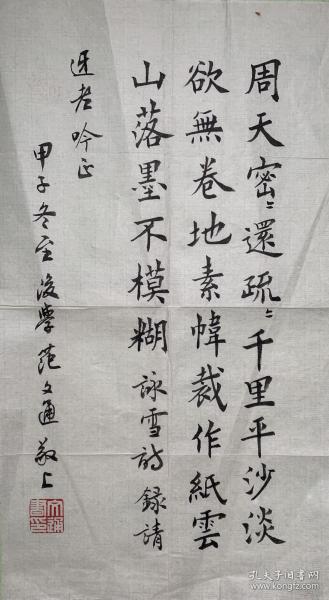 周天密〻還疏〻千里平沙淡
欲無卷地素幃裁作紙雲
山落墨不模糊詠雪詩錄請
迓老吟正
甲子冬至後學范文通敬上
孔夫子旧书网